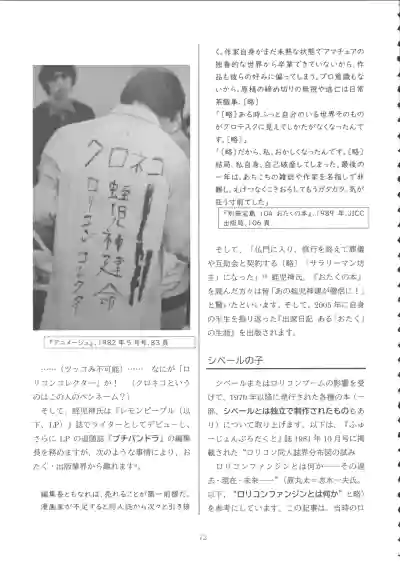 クロネコ
蛭児神建命
ロリコンコレクター
『アニメージュ』、1982年5月号、83頁
……（ツッコみ不可能）…… なにが「ロ
リコンコレクター」か！ （クロネコという
のはこの人のペンネーム？）
そして、蛭児神氏は『レモンピープル（以
下、LP）』誌でライターとしてデビューし、
さらにLPの追随誌『プチパンドラ』の編集
長を務めますが、次のような事情により、お
たく・出版業界から離れます
編集長ともなれば、売れることが第一前提だ。
漫画家が不足すると同人誌から次々と引き抜
く。作家自身がまだ未熟な状態でアマチュアの
独善的な世界から卒業できていないから、作
品も彼らの好みに偏ってしまう。プロ意識もな
いから、原稿の締め切りの無視や逃亡は日常
茶飯事。〔略〕
「〔略〕ある時ふっと自分のいる世界そのもの
がグロテスクに見えてしかたがなくなったんで
す。〔略〕」
「〔略〕だから、私、おかしくなったんです。〔略〕
結局、私自身、自己破産してしまった。最後の
一年は、あちこちの雑誌や作家を名指しで非
難し、
狂う寸前でした」
『別冊宝島 104 おたくの本』、1989年、JICC
出版局、106頁
そして、「仏門に入り、修行を終えて葬儀
や互助会と契約する〔略〕（サラリーマン坊
主）になった」 蛭児神氏。『おたくの本』
を読んだ方々は皆「あの蛭児神建が僧侶に！」
と驚いたといいます。そして、2005年に自身
の半生を振り返った『出家日記 ある「おたく」
の生涯』を出版されます。
シベールの子
シベールまたはロリコンブームの影響を受
けて、1979年以降に発行された各種の本（一
部、シベールとは独立で制作されたものもあ
り）について取り上げます。以下は、『ふゅ
ーじょんぷろだくと』誌1981年10月号に掲
載された “ロリコン同人誌界分布図の試み
ロリコンファンジンとは何か――その過
去・現在・未来――”（原丸太＝志水一夫氏。
以下、“ロリコンファンジンとは何か” と略）
を参考にしています。この記事は、当時のロ
72